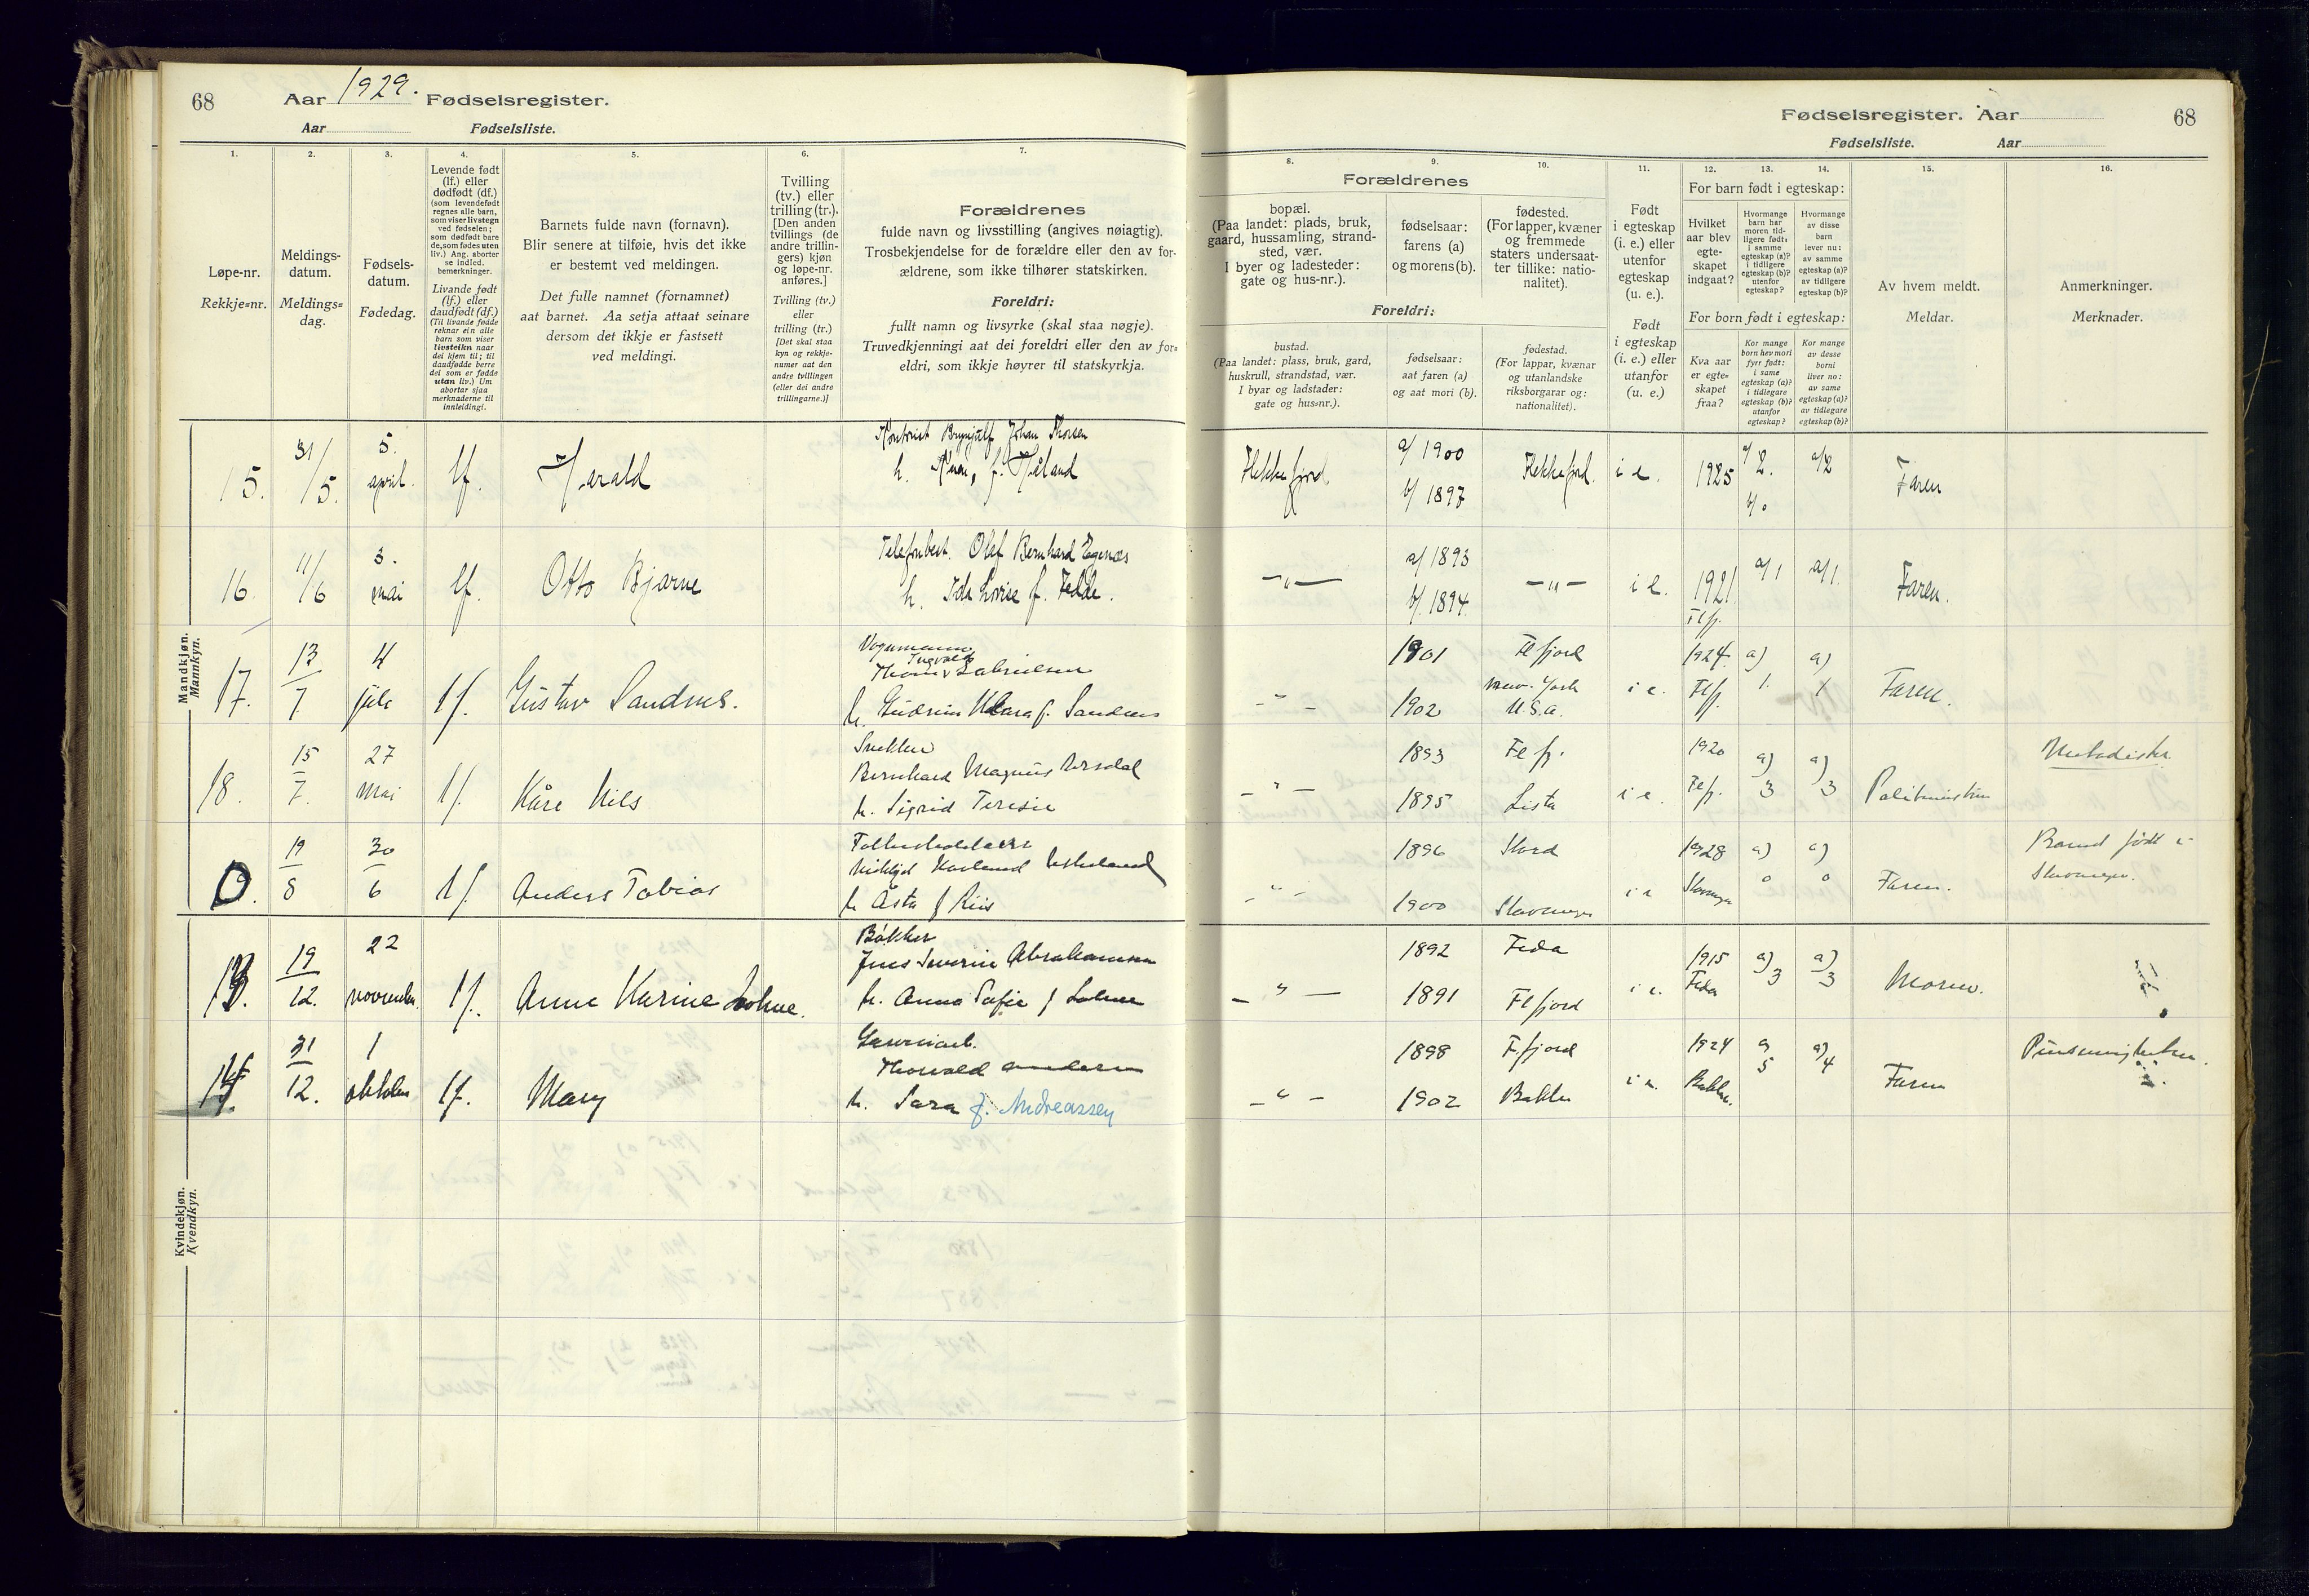 68
Aar 1929. Fødselsregister.
Aar Fødselsliste.
1.
Løpe-nr.
Rekkje=nr.
2.
Meldings-
datum.
Meldings=
dag.
3.
Fødsels-
datum.
Fødedag.
4.
Levende født
(lf.) eller
dødfødt (df.)
(som levendefødt
regnes alle barn,
som viser livstegn
ved fødselen;
som dødfødt bare
de, som fødes uten
liv.) Ang. aborter
se indled.
bemerkninger.
Livande født
(lf.) eller
daudfødt (df.)
(Til livande fødde
reknar ein alle
barn som viser
livsteikn naar
dei kjem til; til
daudfødde berre
dei som er fødde
utan liv.) Um
abortar sjaa
merknaderne til
innleidingi.
5.
Barnets fulde navn (fornavn).
Blir senere at tilføie, hvis det ikke
er bestemt ved meldingen.
Det fulle namnet (fornamnet)
aat barnet. Aa setja attaat seinare
dersom det ikkje er fastsett
ved meldingi.
6.
Tvilling
(tv.) eller
trilling (tr.).
[Den anden
tvillings (de
andre trillin-
gers) kjøn
og løpe-nr.
anføres.]
Tvilling (tv.)
eller
trilling (tr.)
[Det skal staa
kyn og rekkje-
numer aat den
andre tvillingen
(eller dei andre
trillingarne.)]
7.
Forældrenes
fulde navn og livsstilling (angives nøiagtig).
Trosbekjendelse for de forældre eller den av for-
ældrene, som ikke tilhører statskirken.
Foreldri:
fullt namn og livsyrke (skal staa nøgje).
Truvedkjenningi aat dei foreldri eller den av for=
eldri, som ikkje høyrer til statskyrkja.
Mandkjøn.
Mannkyn.
15.
31/
/5.
5.
april.
lf.
Harald
Kontorist Brynjulf Johan Thorsen
h. f. Håland
16.
11/
/6
3.
mai
lf.
Otto Bjarne
Telefonbest. Olaf Bernhard Egenæs
h. Ida Lovise f. Fedde.
17.
13
7
4
juli
lf.
Gustav Sandnes.
Vognmann
Ingvald
Thom. Gabrielsen
h. Gudrun Klara f. Sandnes
18.
15
7.
27
mai
lf.
Kåre Nils
Snekker
Bernhard Magnus Årsdal
h. Sigrid Teresie
0.
19
8
30
6
lf.
Anders Tobias
h Åsta f Riis
Kvindekjøn.
Kvendkyn.
13.
19
12.
22
november
lf.
Anne Karine Lohne.
Bakker
Jens Severin Abrahamsen
h. Anna Sofie f Lohne
14.
31
12.
1
oktober
lf.
Mary
Thorvald Andersen
h. Sara f. Andreassen
Fødselsregister. Aar 68
Fødselsliste. Aar
8.
Forældrenes
bopæl.
(Paa landet: plads, bruk,
gaard, hussamling, strand-
sted, vær.
I byer og ladesteder:
gate og hus-nr.).
9.
fødselsaar:
farens (a)
og morens (b).
10.
fødested.
(For lapper, kvæner
og fremmede
staters undersaat-
ter tillike: natio-
nalitet).
Foreldri:
bustad.
(Paa landet: plass, bruk, gard,
huskrull, strandstad, vær.
I byar og ladstader:
gate og hus=nr.).
fødselsaar:
aat faren (a)
og aat mori (b).
fødestad.
(For lappar, kvænar
og utanlandske
riksborgarar og:
nationalitet).
11.
Født
i egteskap
(i. e.) eller
utenfor
egteskap
(u. e.).
Født
i egteskap
(i. e.) eller
utanfor
(u. e.)
12. 13. 14.
For barn født i egteskap:
Hvilket
aar blev
egte-
skapet
indgaat?
Hvormange
barn har
moren tid-
ligere født:
i samme
egteskap (a)?
i tidligere
egteskap (b)?
utenfor
egteskap?
Hvormange
av disse
barn
lever nu:
av samme
egteskap (a)?
av tidligere
egteskap (b)?
For born født i egteskap:
Kva aar
er egte=
skapet
fraa?
Kor mange
born hev mori
fyrr født:
i same
egteskap (a)?
i tidlegare
egteskap (b)?
utanfor
egteskap?
Kor mange
av desse
borni
liver no:
av same
egteskap (a)?
av tidlegare
egteskap (b)?
15.
Av hvem meldt.
Meldar.
16.
Anmerkninger.
Merknader.
Flekkefjord.
a/ 1900
b/ 1897
Flekkefjord.
i e.
1925
a/ 2.
b/ 0
a/2
Faren
—"—
a/ 1893
b/ 1894.
—"—
i e.
1921
Flfj.
a/1
a/1.
Faren.
- " -
1901
1902
Flfjord
New-York
U.S.A.
i e.
1924.
Flfj.
a)
1.
a)
1
Faren.
- " -
1893
1895
Flfj.
Lista
i e.
1920
Flfj.
a)
3
a)
3
Metodister.
- " -
1896
1900
Stord
Stavanger
i e
1928
Stavanger
a)
0
a)
0
Faren.
Barnet født i
Stavanger.
- " -
1892
1891
Feda
Flfjord
i e.
1915
Feda
a)
3
a)
3
Moren.
- " -
1898
1902
Flfjord
Bakke
i e.
1924
Bakke.
a)
5
a)
4
Faren